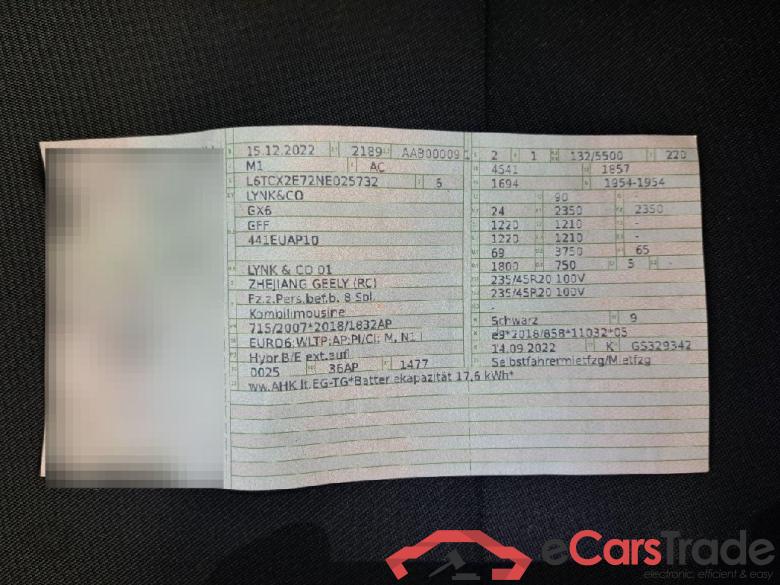 15.12.2022 2189 AAB00009
M1 AC
L6TCX2E72NE025732 5
LYNK&CO
GX6
GFF
441EUAP10
LYNK & CO 01
ZHEJIANG GEELY (RC)
Fz.z.Pers.bef.b. 8 Spl.
Kombilimousine
715/2007*2018/1832AP
EURO6;WLTP;AP;PI/CI; M, N1 I
Hybr.B/E ext.aufl
0025 36AP 1477
ww.AHK lt.EG-TG*Batteriekapazität 17,6 kWh*
2 1 132/5500 220
4541 1857
1694 1954-1954
- 90 -
24 2350 2350
1220 1210 -
1220 1210 -
69 3750 65
1800 750 5 -
235/45R20 100V
235/45R20 100V
-
Schwarz 9
e9*2018/858*11032*05
14.09.2022 K GS329342
Selbstfahrermietfzg/Mietfzg
eCarsTrade
electronic, efficient & easy